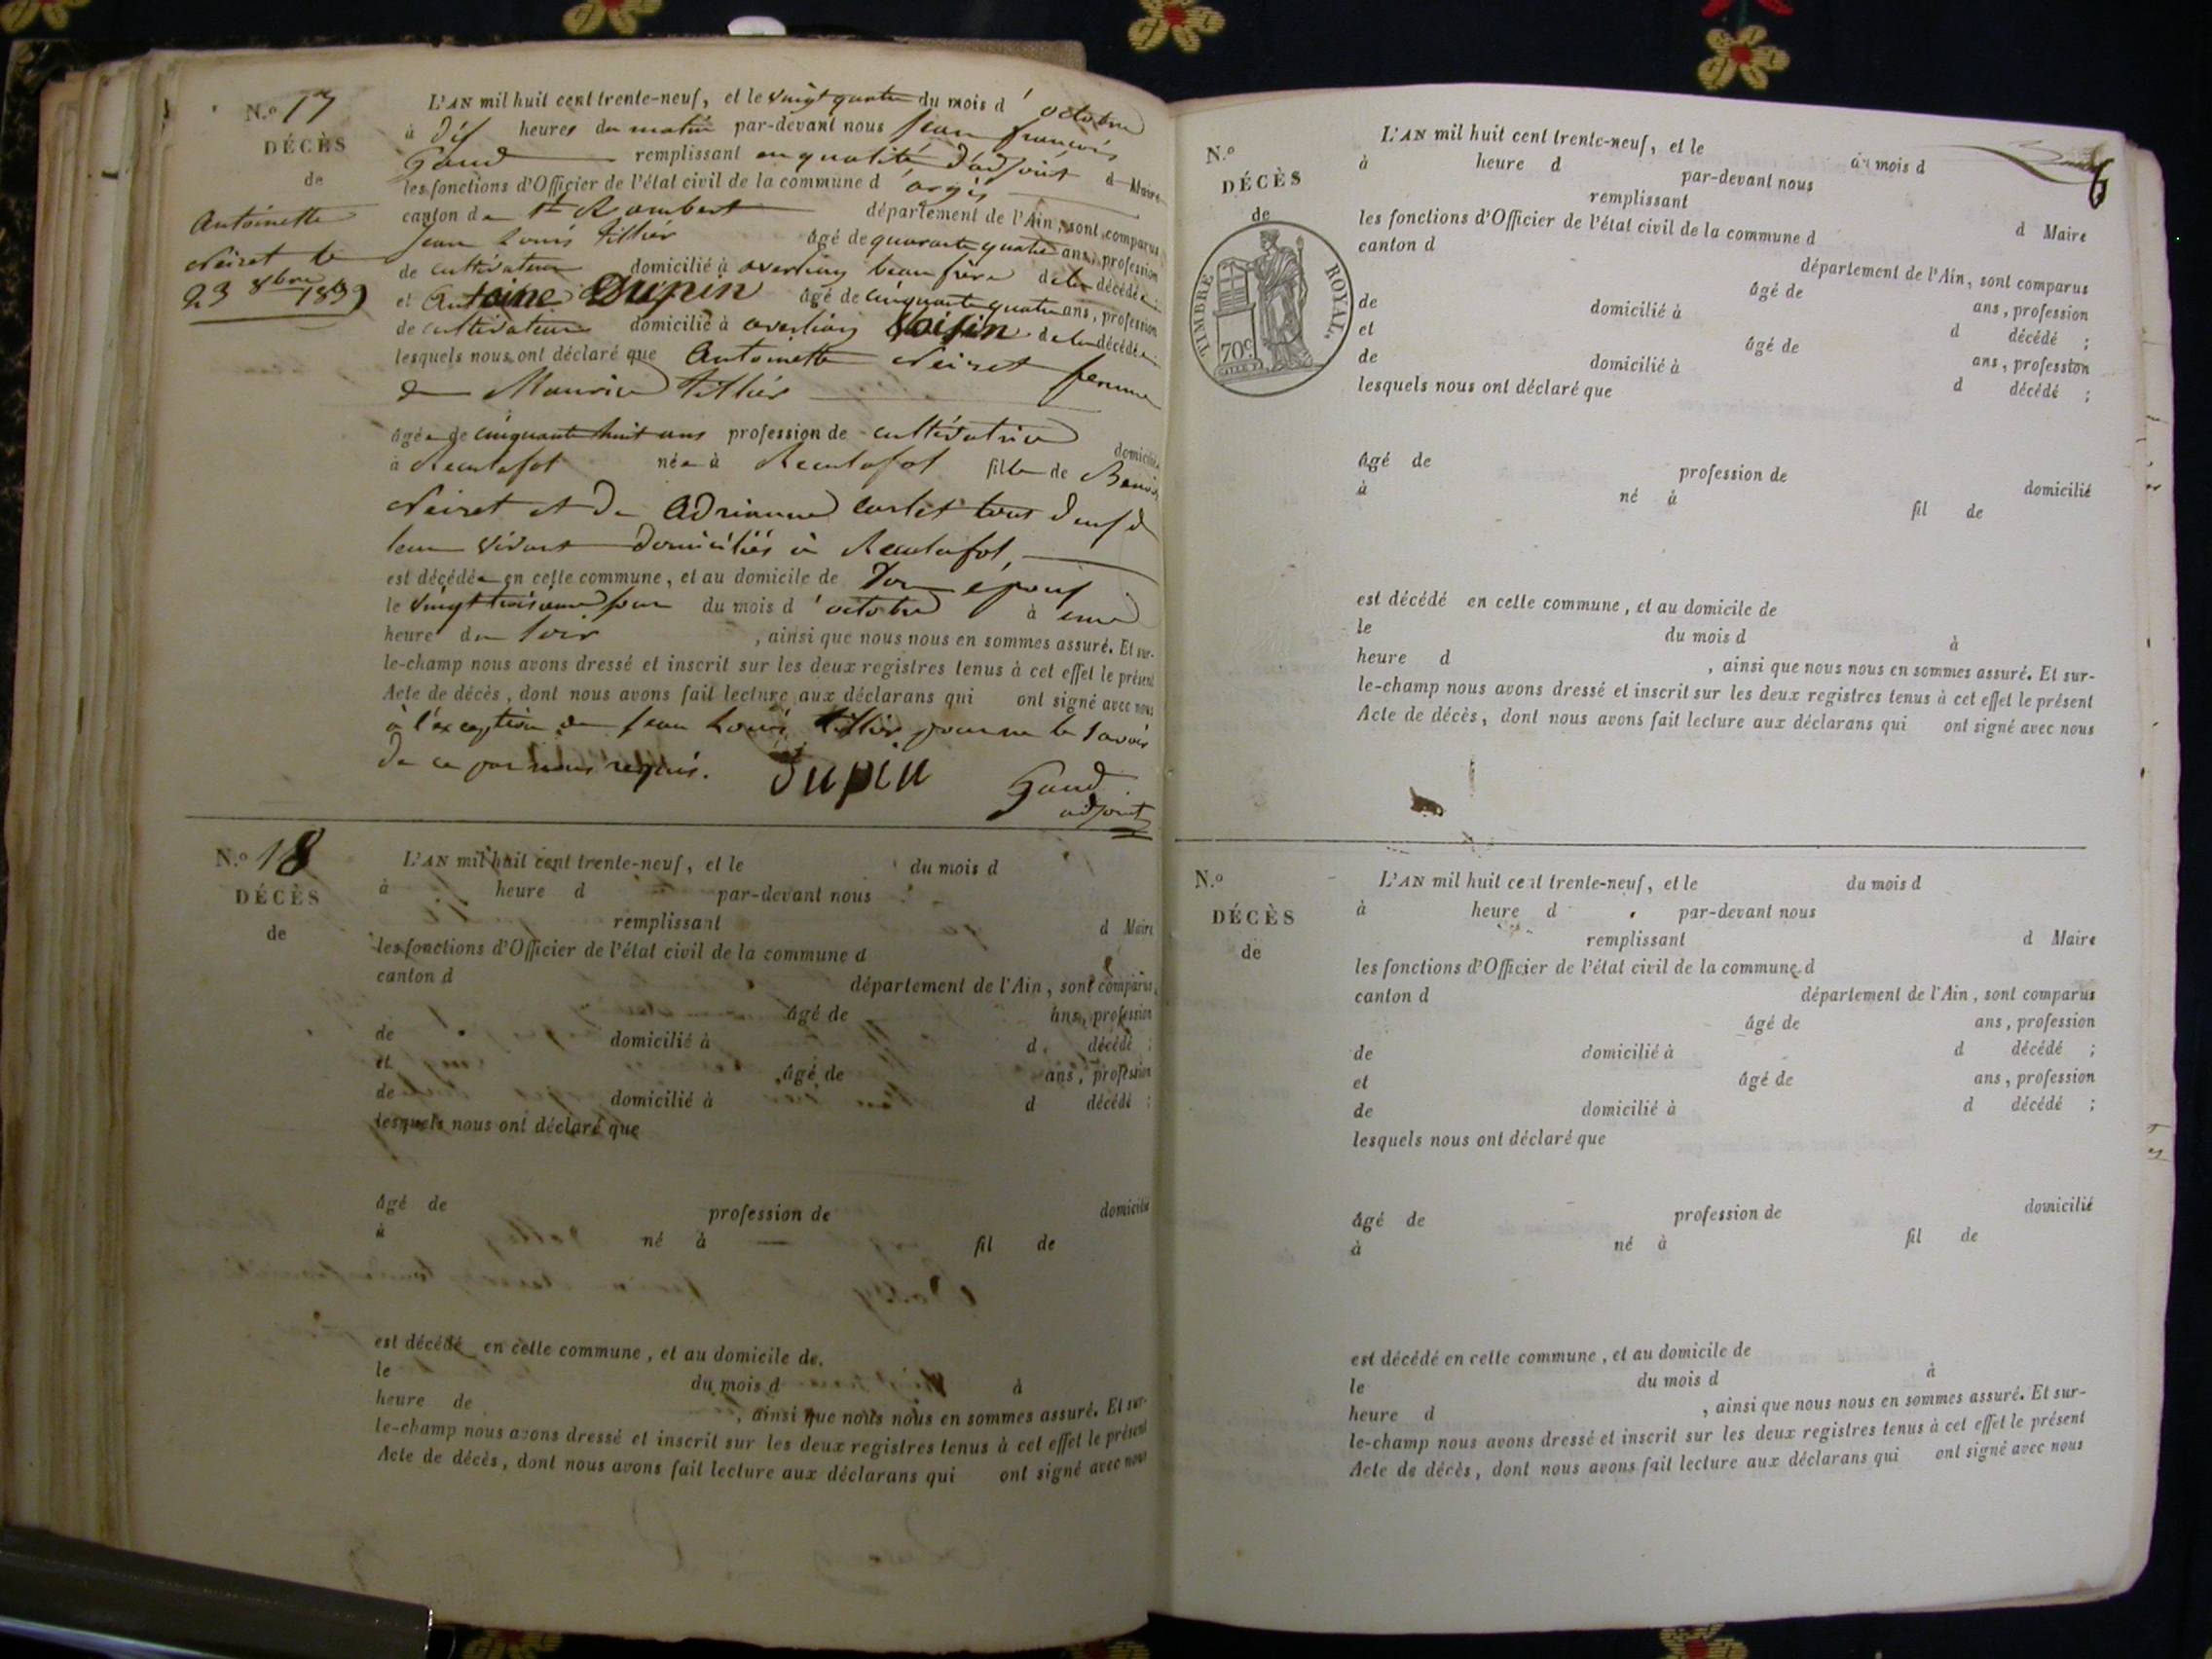 N.o 17
DÉCÈS
de
Antoinette
Neiret le
23 8bre 1839
L'AN mil huit cent trente-neuf, et le vingt quatre du mois d'octobre
à dix heures du matin par-devant nous Jean françois
Gaud remplissant en qualité d'adjoint d Maire
les fonctions d'Officier de l'état civil de la commune d'argis
canton de St Rambert département de l'Ain, sont comparus
Jean Louis tillier âgé de quarante quatre ans, profession
de cultivateur domicilié à beau frère de la décédée ;
et Antoine Dupin âgé de cinquante quatre ans, profession
de cultivateur domicilié à Voisin de la décédée ;
lesquels nous ont déclaré que Antoinette Neiret femme
de Maurice tillier
âgée de cinquante huit ans profession de cultivatrice domicilié
à Reculafol née à Reculafol fille de Benoit
Neiret et de Adrianne tous deux d
leur vivant domiciliés à Reculafol,
est décédée en cette commune, et au domicile de Son époux
le vingt troisième jour du mois d'octobre à une
heure du Soir , ainsi que nous nous en sommes assuré. Et sur-
le-champ nous avons dressé et inscrit sur les deux registres tenus à cet effet le présent
Acte de décès, dont nous avons fait lecture aux déclarans qui ont signé avec nous
à l'exception de Jean Louis tillier pour ne le Savoir
de ce par nous requis. Dupin Gaud
adjoint
N.o 18
DÉCÈS
de
L'AN mil huit cent trente-neuf, et le du mois d
à heure d par-devant nous
remplissant d Maire
les fonctions d'Officier de l'état civil de la commune d
canton d département de l'Ain, sont comparus
âgé de ans, profession
de domicilié à d décédé ;
et âgé de ans, profession
de domicilié à d décédé ;
lesquels nous ont déclaré que
âgé de profession de domicilié
à né à fil de
est décédé en cette commune, et au domicile de
le du mois d à
heure de , ainsi que nous nous en sommes assuré. Et sur-
le-champ nous avons dressé et inscrit sur les deux registres tenus à cet effet le présent
Acte de décès, dont nous avons fait lecture aux déclarans qui ont signé avec nous
6
N.o
DÉCÈS
de
TIMBRE ROYAL.
70c
L'AN mil huit cent trente-neuf, et le du mois d
à heure d par-devant nous
remplissant d Maire
les fonctions d'Officier de l'état civil de la commune d
canton d département de l'Ain, sont comparus
âgé de ans, profession
de domicilié à d décédé ;
et âgé de ans, profession
de domicilié à d décédé ;
lesquels nous ont déclaré que
âgé de profession de domicilié
à né à fil de
est décédé en cette commune, et au domicile de
le du mois d à
heure d , ainsi que nous nous en sommes assuré. Et sur-
le-champ nous avons dressé et inscrit sur les deux registres tenus à cet effet le présent
Acte de décès, dont nous avons fait lecture aux déclarans qui ont signé avec nous
N.o
DÉCÈS
de
L'AN mil huit cent trente-neuf, et le du mois d
à heure d par-devant nous
remplissant d Maire
les fonctions d'Officier de l'état civil de la commune d
canton d département de l'Ain, sont comparus
âgé de ans, profession
de domicilié à d décédé ;
et âgé de ans, profession
de domicilié à d décédé ;
lesquels nous ont déclaré que
âgé de profession de domicilié
à né à fil de
est décédé en cette commune, et au domicile de
le du mois d à
heure d , ainsi que nous nous en sommes assuré. Et sur-
le-champ nous avons dressé et inscrit sur les deux registres tenus à cet effet le présent
Acte de décès, dont nous avons fait lecture aux déclarans qui ont signé avec nous